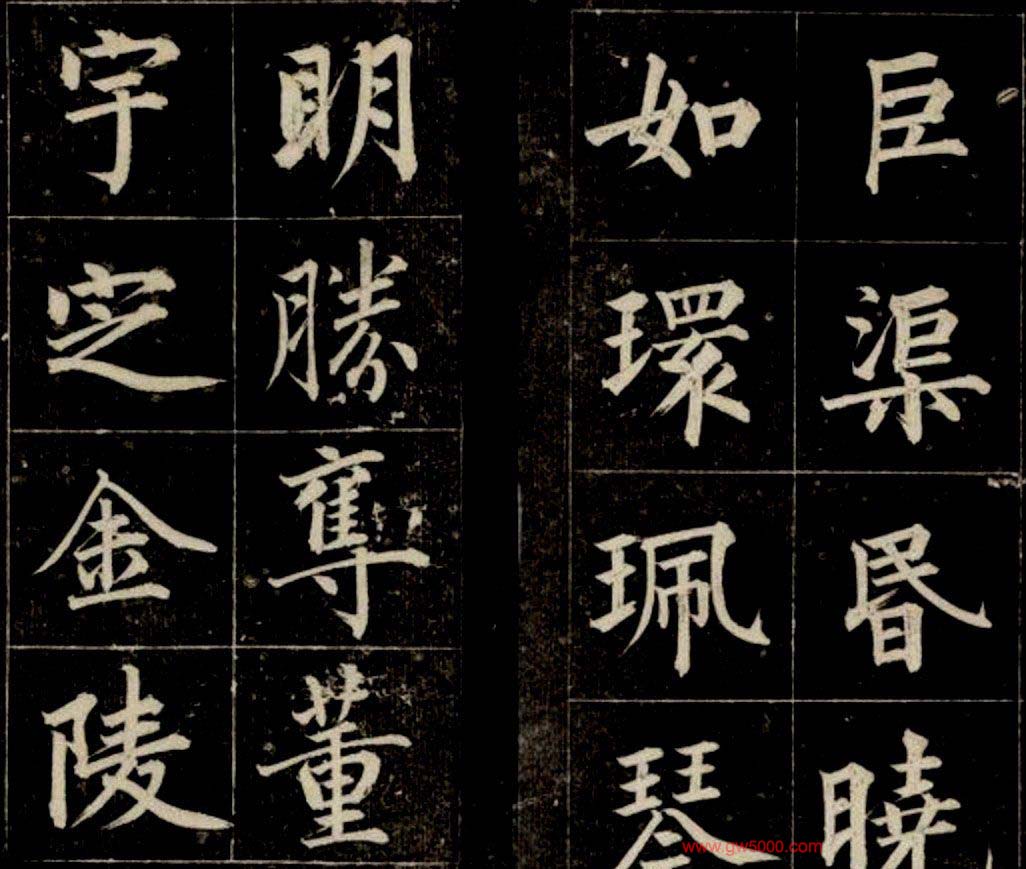 臣渠昬曉
如環珮琴
眀勝奪董
宇定金陵
www.gw5000.com